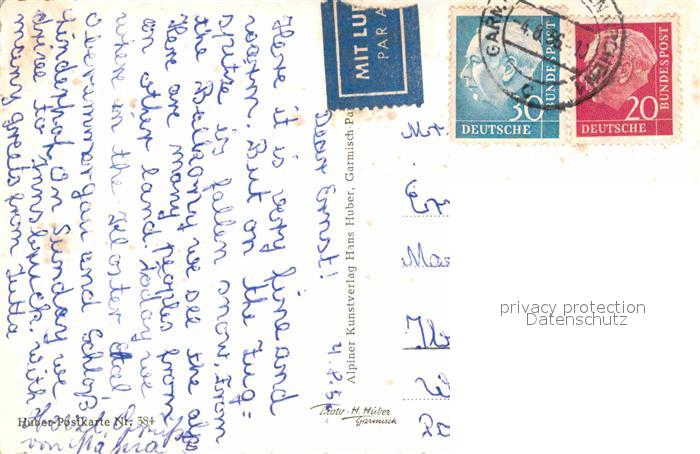 MIT LU
PAR A
GARM
4.8.56
30
DEUTSCHE
BUNDESPOST
20
DEUTSCHE
BUNDESPOST
Dear Ernst! 4.8.56
Here it is very fine and
warm. But on the Zug=
spitze is fallen snow. From
the Balkony we see the alps
Here are many peoples from
an other land. Today we
where in the Kloster Etal
Oberammergau and Schloß
Linderhof. On Sunday we
drive to Innsbruck. With
many greets from Jutta
von
Alpiner Kunstverlag Hans Huber, Garmisch-Pa
Huber-Postkarte Nr. 384
Photo-H. Huber
Garmisch
privacy protection
Datenschutz